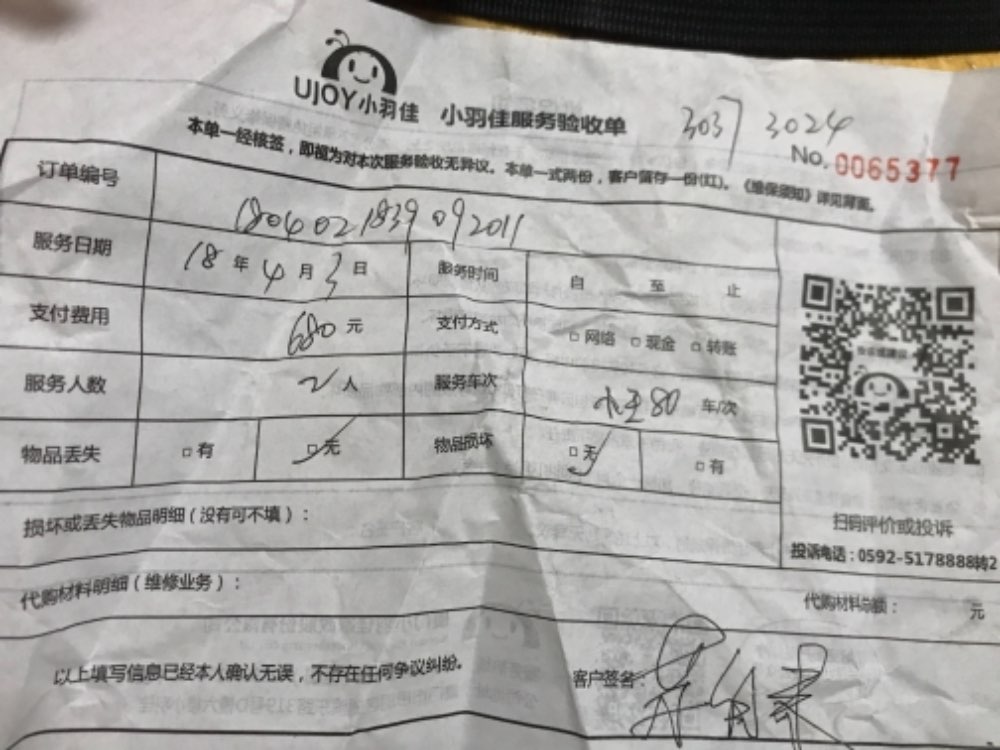 UJOY小羽佳 小羽佳服务验收单
3037 3024
本单一经核签，即视为对本次服务验收无异议。本单一式两份，客户留存一份(红)。《维保须知》详见背面。
No. 0065377
订单编号 1804021839092011
服务日期 18年4月3日 服务时间 自 至 止
支付费用 680元 支付方式 □网络 □现金 □转账
服务人数 2人 服务车次 80 车/次
物品丢失 □有 □无 物品损坏 □无 □有
扫码评价或投诉
投诉电话：0592-5178888转2
损坏或丢失物品明细（没有可不填）：
代购材料明细（维修业务）： 代购材料总额： 元
以上填写信息已经本人确认无误，不存在任何争议纠纷。 客户签名：